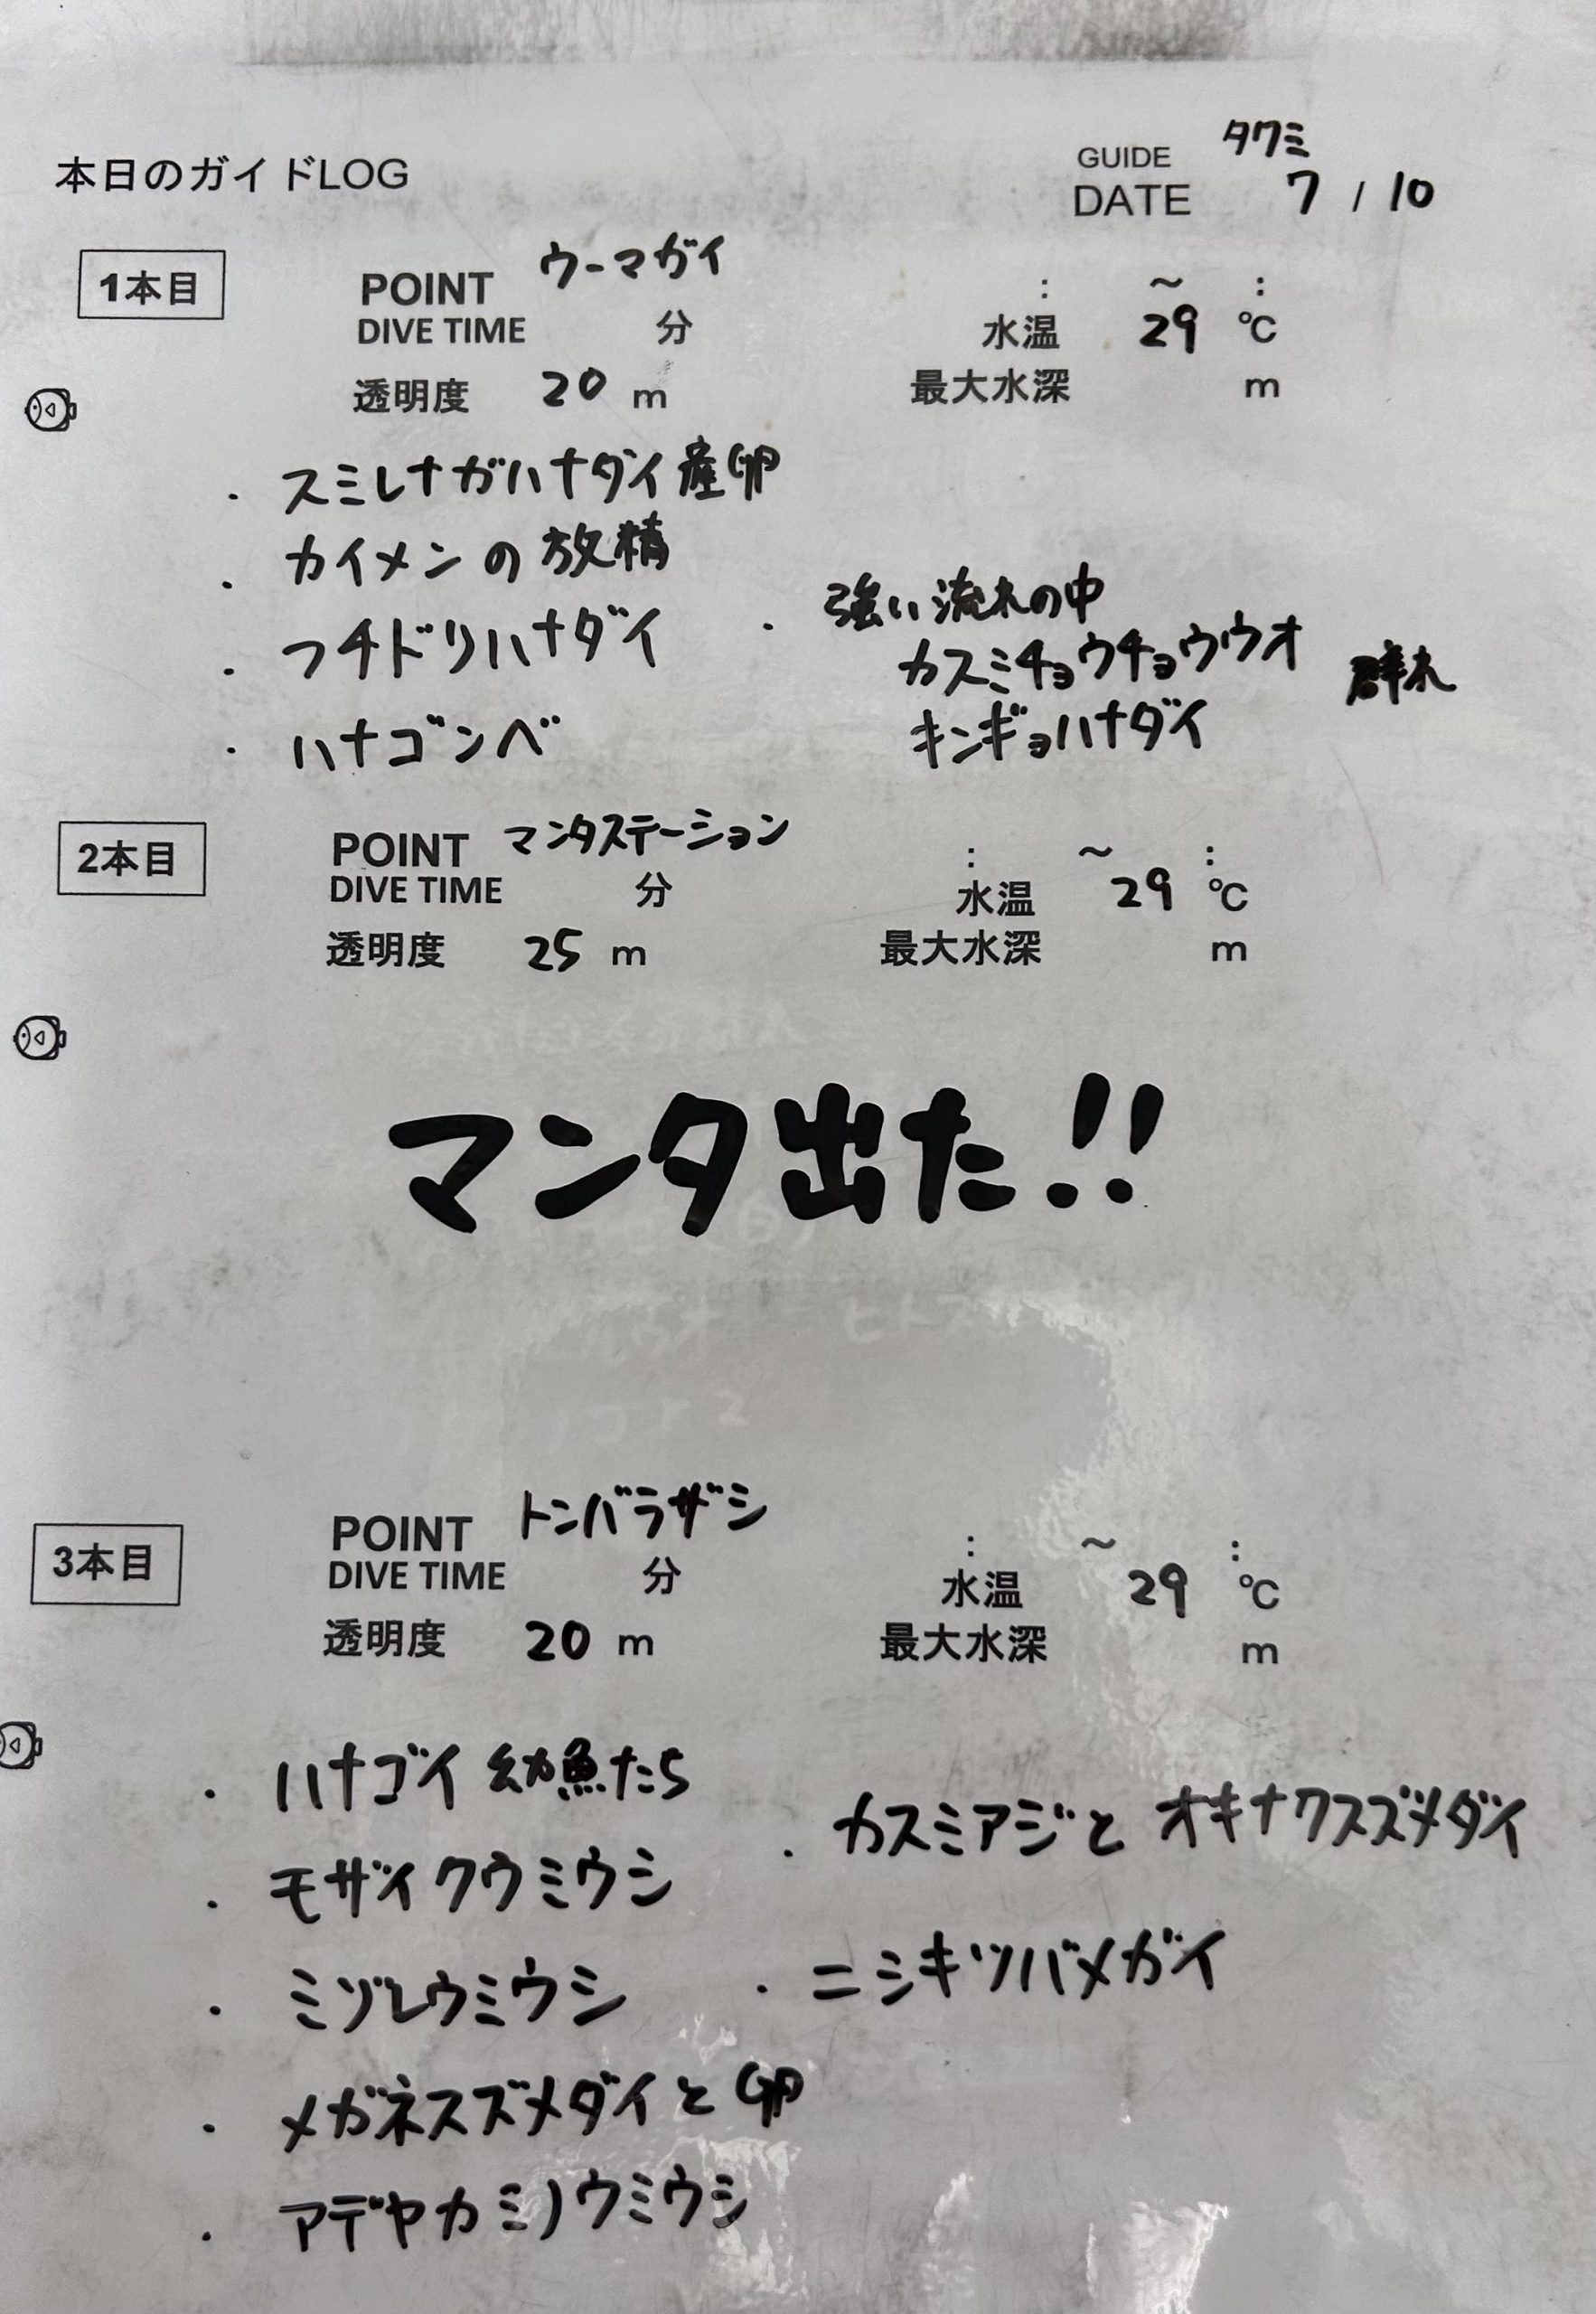 本日のガイドLOG
GUIDE タクミ
DATE 7 / 10
1本目
POINT ウーマガイ : ～ :
DIVE TIME 分 水温 29 ℃
透明度 20 m 最大水深 m
・スミレナガハナダイ産卵
・カイメンの放精
・フチドリハナダイ
・ハナゴンベ
・強い流れの中
カスミチョウチョウウオ 群れ
キンギョハナダイ
2本目
POINT マンタステーション : ～ :
DIVE TIME 分 水温 29 ℃
透明度 25 m 最大水深 m
マンタ出た!!
3本目
POINT トンバラザシ : ～ :
DIVE TIME 分 水温 29 ℃
透明度 20 m 最大水深 m
・ハナゴイ幼魚たち
・モザイクウミウシ
・ミゾレウミウシ
・メガネスズメダイと卵
・アデヤカミノウミウシ
・カスミアジと オキナワスズメダイ
・ニシキツバメガイ